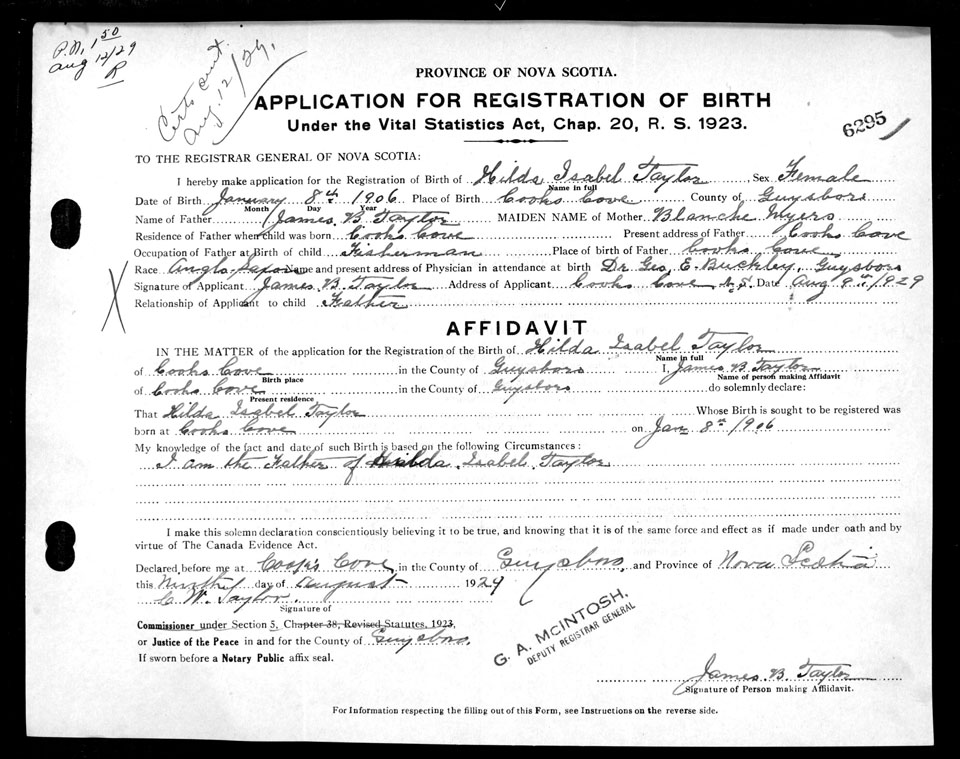 P.N. 1 50
Aug 12/29
R
Certs out.
Aug. 12/29.
PROVINCE OF NOVA SCOTIA.
APPLICATION FOR REGISTRATION OF BIRTH
Under the Vital Statistics Act, Chap. 20, R. S. 1923.
6295
TO THE REGISTRAR GENERAL OF NOVA SCOTIA:
I hereby make application for the Registration of Birth of Hilda Isabel Taylor Sex Female
Name in full
Date of Birth January 8th 1906. Place of Birth Cooks Cove County of Guysboro
Month Day Year
Name of Father James B Taylor MAIDEN NAME of Mother Blanche Myers
Residence of Father when child was born Cooks Cove Present address of Father Cooks Cove
Occupation of Father at Birth of child Fisherman Place of birth of Father Cooks Cove
Race Anglo-Saxon Name and present address of Physician in attendance at birth Dr. Geo. E. Buckley, Guysboro
Signature of Applicant James B. Taylor Address of Applicant Cooks Cove N.S. Date Aug 9th 1929
Relationship of Applicant to child Father
AFFIDAVIT
IN THE MATTER of the application for the Registration of the Birth of Hilda Isabel Taylor
Name in full
of Cooks Cove in the County of Guysboro I, James B Taylor
Birth place Name of person making Affidavit
of Cooks Cove in the County of Guysboro do solemnly declare:
Present residence
That Hilda Isabel Taylor Whose Birth is sought to be registered was
born at Cooks Cove on Jan 8th 1906
My knowledge of the fact and date of such Birth is based on the following Circumstances:
I am the Father of Hilda Isabel Taylor
I make this solemn declaration conscientiously believing it to be true, and knowing that it is of the same force and effect as if made under oath and by
virtue of The Canada Evidence Act.
Declared before me at Cooks Cove, in the County of Guysboro, and Province of Nova Scotia
this Ninth day of August 1929
C. W. Taylor.
Signature of
Commissioner under Section 5, Chapter 38, Revised Statutes, 1923,
or Justice of the Peace in and for the County of Guysboro.
If sworn before a Notary Public affix seal.
G. A. McINTOSH,
DEPUTY REGISTRAR GENERAL
James B. Taylor
Signature of Person making Affidavit.
For Information respecting the filling out of this Form, see Instructions on the reverse side.